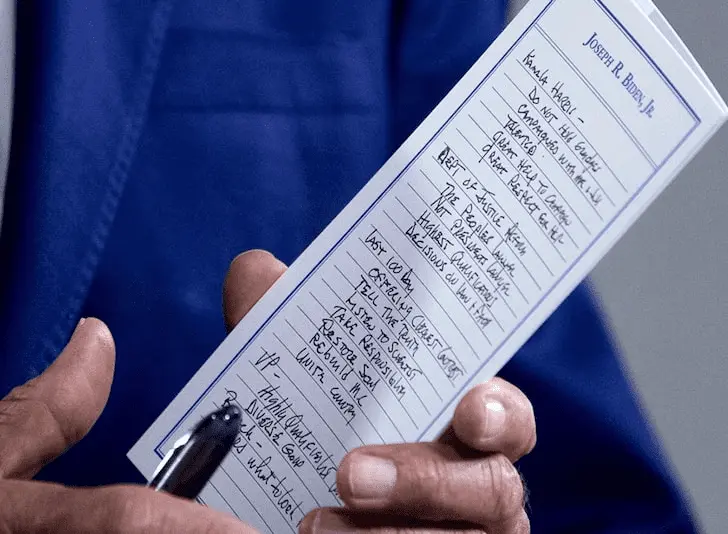 JOSEPH R. BIDEN, JR.
KAMALA HARRIS -
DO NOT HOLD GRUDGES
CAMPAIGNED WITH ME & JILL
TALENTED
GREAT HELP TO CAMPAIGN
GREAT RESPECT FOR HER
DEPT OF JUSTICE
THE PEOPLES LAWYER
NOT PRESIDENT LAWYER
HIGHEST QUALIFICATIONS
DECISIONS ON LAW &
LAST 100 DAY
OFFERING CLEAREST CONTRAST
TELL THE TRUTH
LISTEN TO SCIENCE
TAKE RESPONSIBILITY
RESTORE SOUL
REBUILD MC
UNITE COUNTRY
VP -
HIGHLY QUALIFIED
DIVERSE GROUP
WHAT TO LOOK